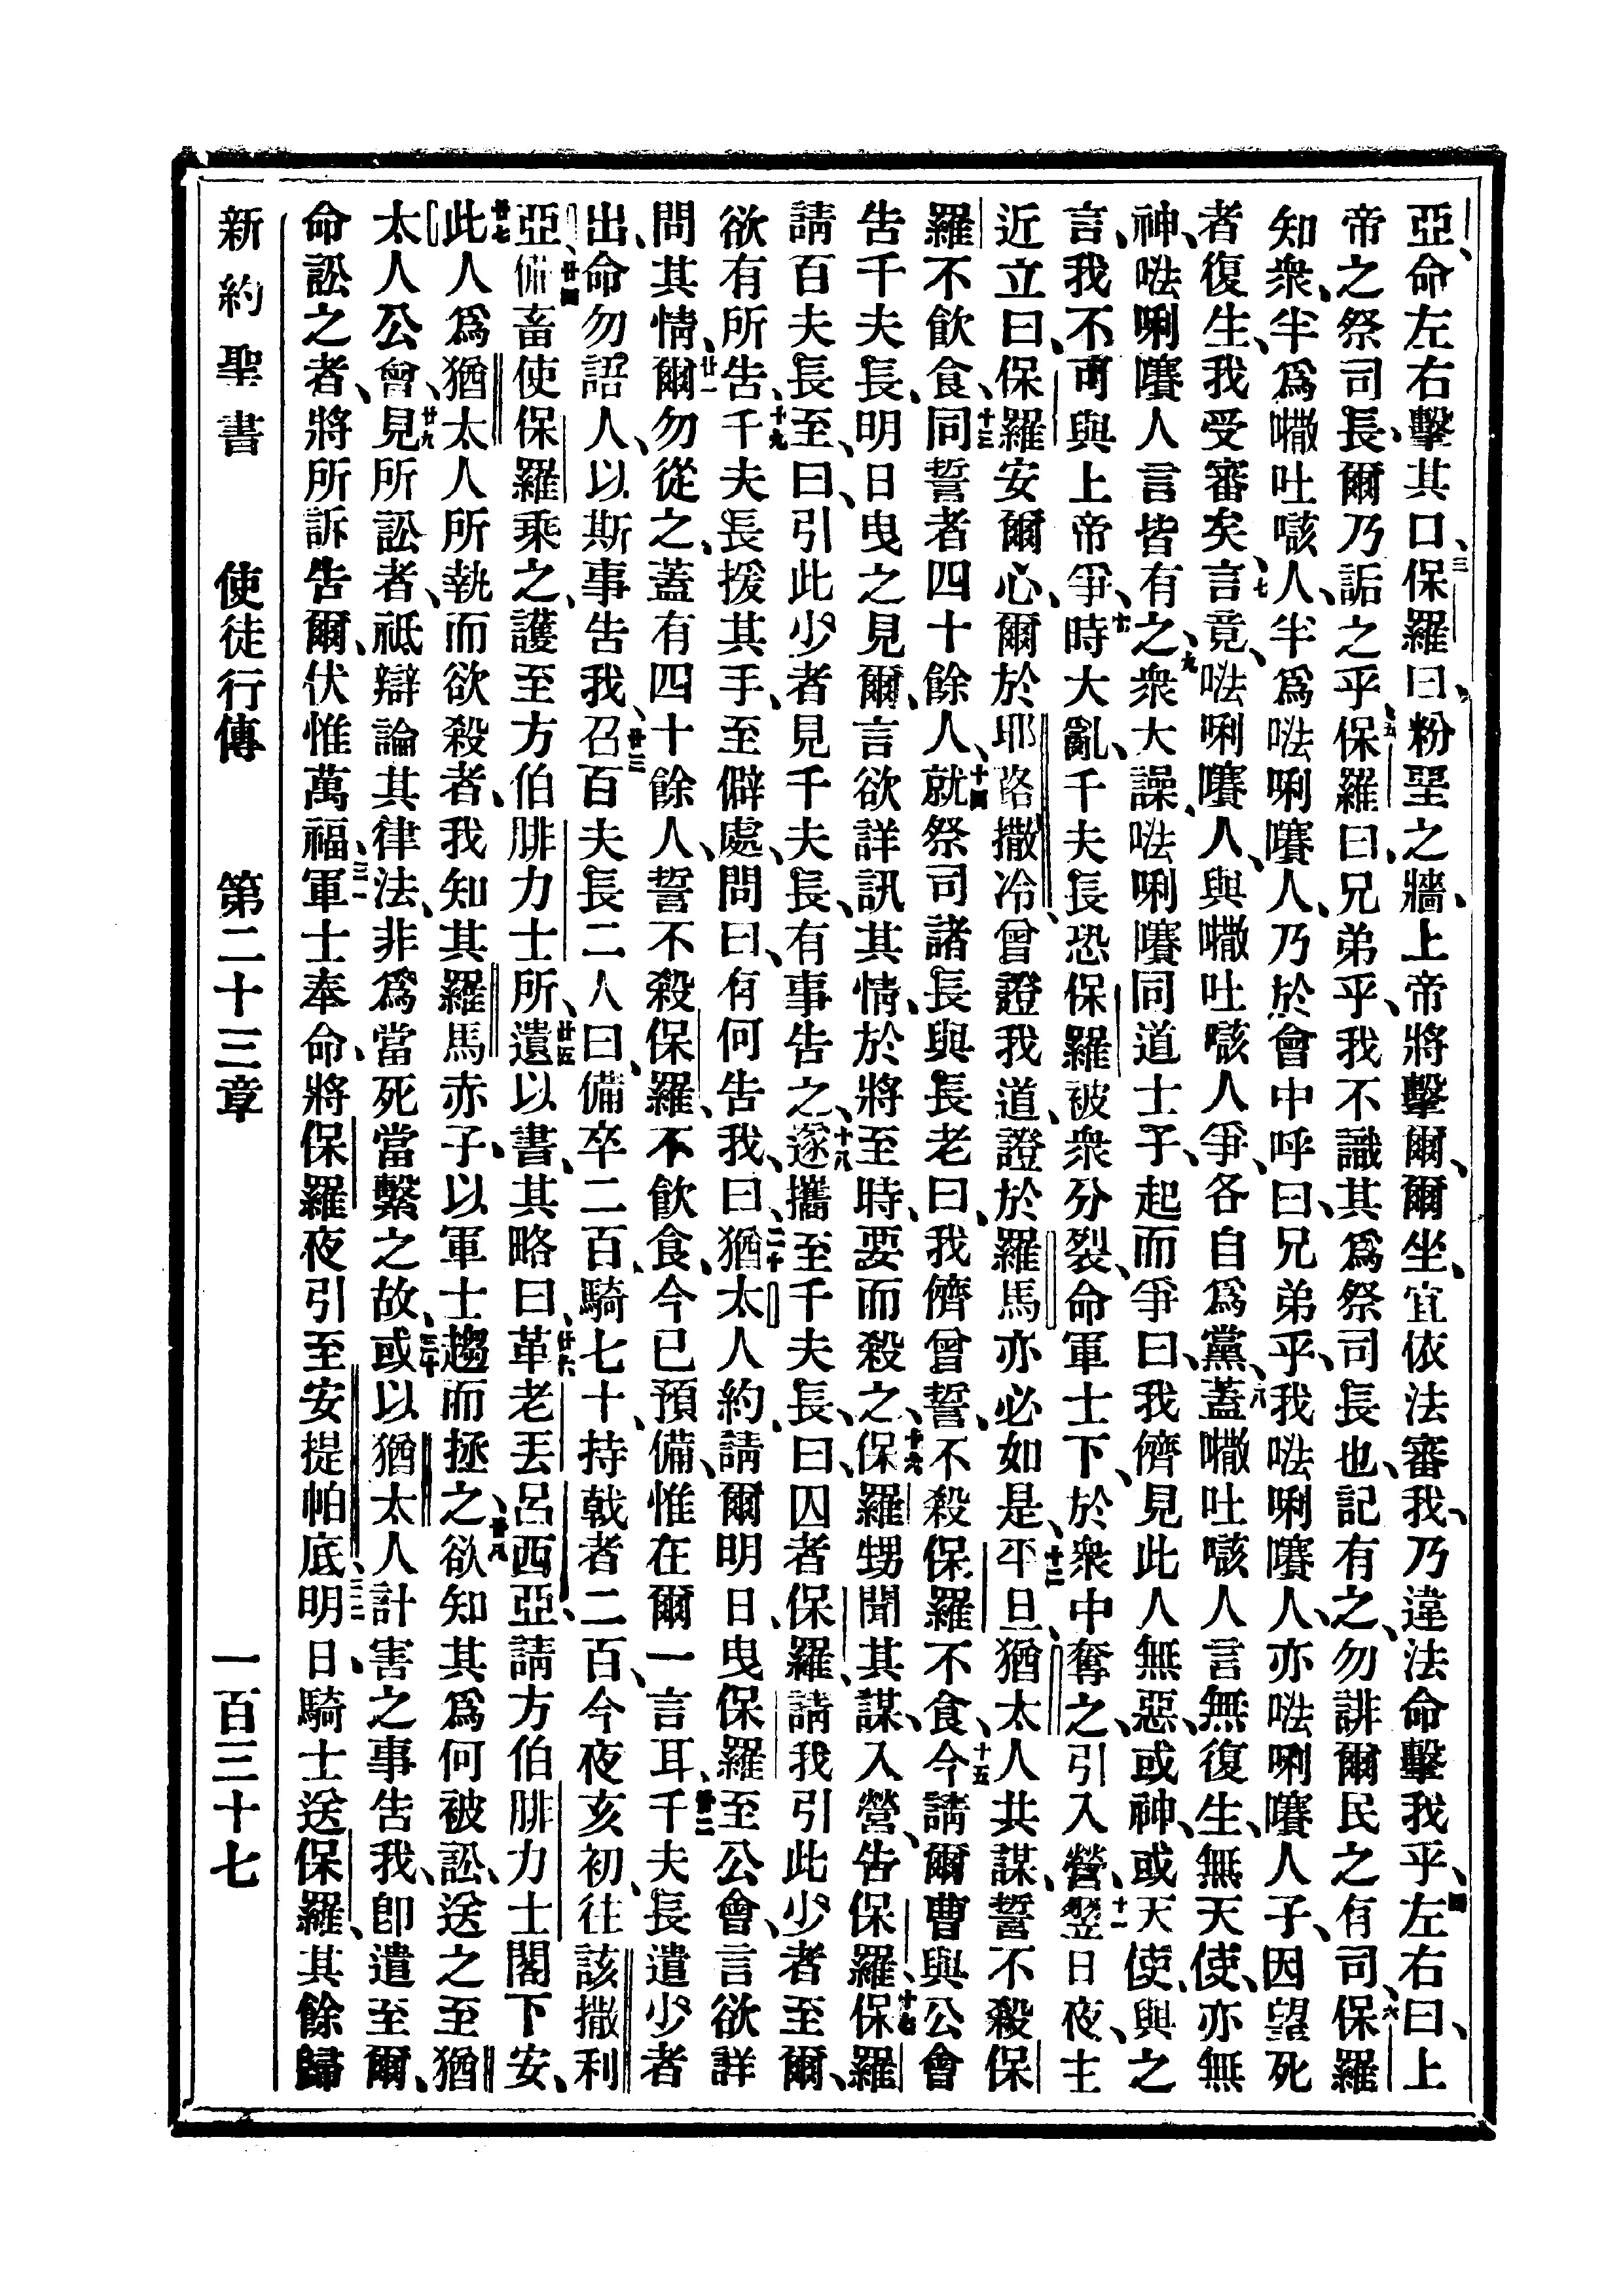 亞、命左右擊其口、三保羅曰、粉堊之牆、上帝將擊爾、爾坐、宜依法審我、乃違法命擊我乎、四左右曰、上
帝之祭司長、爾乃詬之乎、五保羅曰、兄弟乎、我不識其爲祭司長也、記有之、勿誹爾民之有司、六保羅
知衆、半爲㘔吐㗒人、半爲𠵽唎㘔人、乃於會中呼曰、兄弟乎、我𠵽唎㘔人、亦𠵽唎㘔人子、因望死
者復生、我受審矣、七言竟、𠵽唎㘔人、與㘔吐㗒人爭、各自爲黨、八蓋㘔吐㗒人言無復生、無天使、亦無
神、𠵽唎㘔人言皆有之、九衆大譟、𠵽唎㘔同道士子、起而爭曰、我儕見此人無惡、或神、或天使、與之
言、我不可與上帝爭、十時大亂、千夫長恐保羅被衆分裂、命軍士下、於衆中奪之、引入營、十一翌日夜、主
近立曰、保羅安爾心、爾於耶路撒冷、曾證我道、證於羅馬亦必如是、十二平旦、猶太人共謀、誓不殺保
羅不飲食、十三同誓者四十餘人、十四就祭司諸長與長老曰、我儕曾誓、不殺保羅不食、十五今請爾曹與公會
告千夫長、明日曳之見爾、言欲詳訊其情、於將至時、要而殺之、十六保羅甥聞其謀、入營、告保羅、十七保羅
請百夫長至、曰、引此少者見千夫長、有事告之、十八遂攜至千夫長、曰、囚者保羅、請我引此少者至爾、
欲有所告、十九千夫長援其手、至僻處、問曰、有何告我、二十曰、猶太人約、請爾明日、曳保羅至公會、言欲詳
問其情、廿一爾勿從之、蓋有四十餘人、誓不殺保羅、不飲食、今已預備、惟在爾一言耳、廿二千夫長遣少者
出、命勿語人、以斯事告我、廿三召百夫長二人曰、備卒二百、騎七十、持戟者二百、今夜亥初、往該撒利
亞、廿四備畜使保羅乘之、護至方伯腓力士所、廿五遺以書、其略曰、廿六革老丟呂西亞、請方伯腓力士閣下安、
廿七此人爲猶太人所執而欲殺者、我知其羅馬赤子、以軍士趨而拯之、廿八欲知其爲何被訟、送之至猶
太人公會、廿九見所訟者、祇辯論其律法、非爲當死當繫之故、三十或以猶太人計害之事告我、卽遣至爾、
命訟之者、將所訴告爾、伏惟萬福、三一軍士奉命、將保羅夜引至安提帕底、三二明日、騎士送保羅、其餘歸
新約聖書　使徒行傳　第二十三章　一百三十七